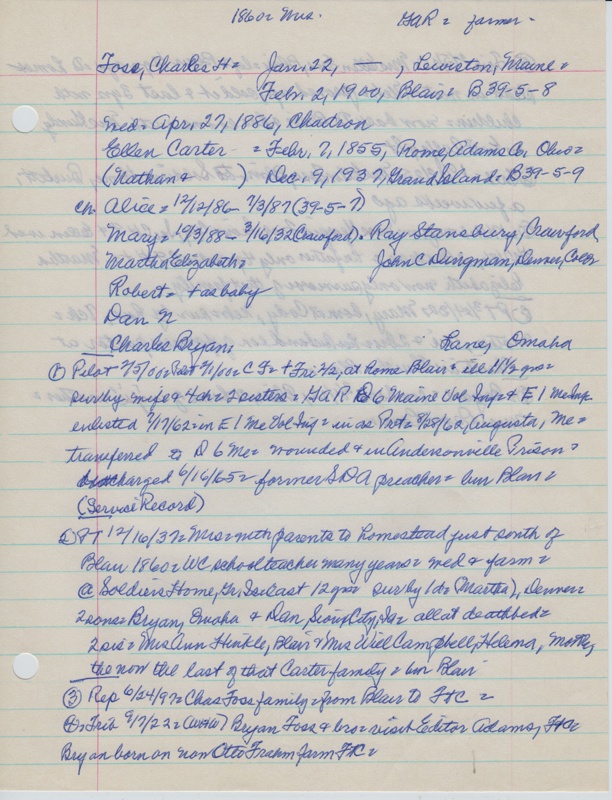 1860s Mrs. GAR = farmer -
Foss, Charles H = Jan. 22, —, Lewiston, Maine =
Febr. 2, 1900, Blair = B 39-5-8
med = Apr. 27, 1886, Chadron
Ellen Carter = Febr. 7, 1855, Rome, Adams Co, Ohio =
(Nathan & ) Dec. 9, 1937, Grand Island = B39-5-9
ch Alice = 12/12/86 - 7/3/87 (39-5-7)
Mary = 10/3/88 - 3/16/32 (Crawford). Ray Stansbury, Crawford
Martha Elizabeth = John C Dingman, Denver, Colo
Robert = + as baby
Dan N
Charles Bryan, Lane, Omaha
① Pilot 2/5/00 = 2/1/00 = C F = + Fri 2/2, at home Blair = ill 1 1/2 yrs =
surv by wife & 4 ch = 2 sisters = GAR D 6 Maine Vol Inf = & E 1 Me Inf
enlisted 9/17/62 in E 1 Me Vol Inf = in as Pvt = 9/25/62, Augusta, Me =
transferred to D 6 Me = wounded & in Andersonville Prison =
discharged 6/16/65 = former SDA preacher = bur Blair =
(Service Record)
② PT 12/16/37 = Mrs = with parents to homestead just south of
Blair 1860 = WC school teacher many years = med & farm =
@ Soldiers Home, Gr. Is = last 12 yrs = surv by 1 d = (Martha), Denver =
2 sons = Bryan, Omaha & Dan, Sioux City, Ia = all at deathbed =
2 sis = Mrs Ann Hinkle, Blair & Mrs Will Campbell, Helena, Mont =
the now the last of that Carter family = bur Blair
③ Rep 6/24/97 = Chas Foss family = from Blair to FtC =
④ Trib 9/7/22 = Bryan Foss & bro = visit Editor Adams, FtC =
Bryan born on now Otto Frahm farm FtC =